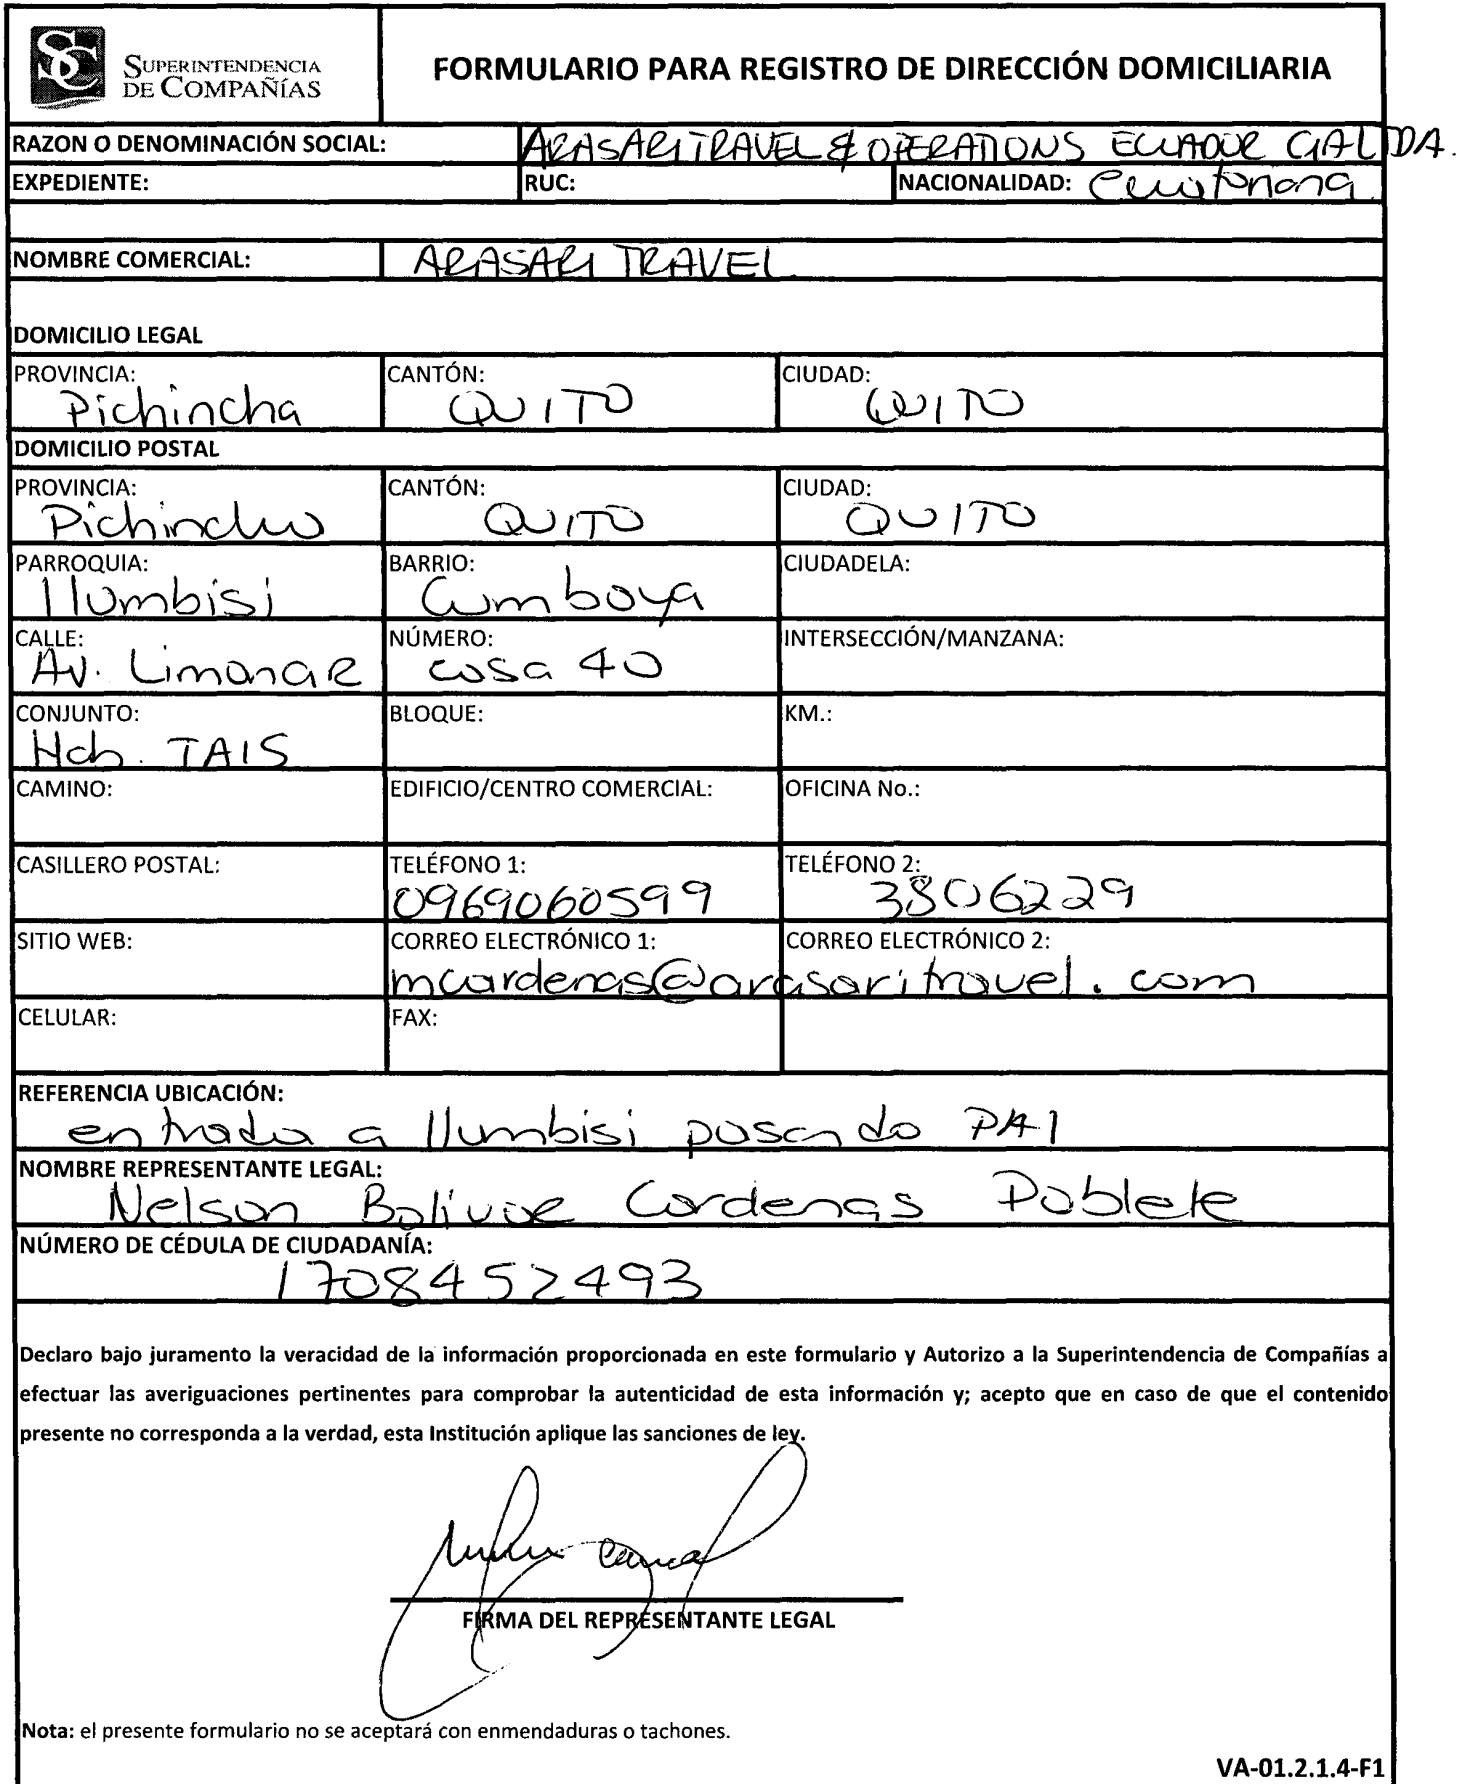 SC SUPERINTENDENCIA DE COMPAÑÍAS
FORMULARIO PARA REGISTRO DE DIRECCIÓN DOMICILIARIA
RAZON O DENOMINACIÓN SOCIAL: ARASARI TRAVEL & OPERATIONS ECUADOR CIA LTDA.
EXPEDIENTE: RUC: NACIONALIDAD: Ecuatoriana
NOMBRE COMERCIAL: ARASARI TRAVEL
DOMICILIO LEGAL
PROVINCIA: CANTÓN: CIUDAD:
Pichincha QUITO QUITO
DOMICILIO POSTAL
PROVINCIA: CANTÓN: CIUDAD:
Pichincha QUITO QUITO
PARROQUIA: BARRIO: CIUDADELA:
Ilumbisi Cumbaya
CALLE: NÚMERO: INTERSECCIÓN/MANZANA:
Av. Limonar casa 40
CONJUNTO: BLOQUE: KM.:
Hab. TAIS
CAMINO: EDIFICIO/CENTRO COMERCIAL: OFICINA No.:
CASILLERO POSTAL: TELÉFONO 1: TELÉFONO 2:
0969060599 3806229
SITIO WEB: CORREO ELECTRÓNICO 1: CORREO ELECTRÓNICO 2:
mcardenas@arasaritravel.com
CELULAR: FAX:
REFERENCIA UBICACIÓN:
entrada a Ilumbisi pasando PAI
NOMBRE REPRESENTANTE LEGAL:
Nelson Bolivar Cardenas Poblete
NÚMERO DE CÉDULA DE CIUDADANÍA:
1708452493
Declaro bajo juramento la veracidad de la información proporcionada en este formulario y Autorizo a la Superintendencia de Compañías a
efectuar las averiguaciones pertinentes para comprobar la autenticidad de esta información y; acepto que en caso de que el contenido
presente no corresponda a la verdad, esta Institución aplique las sanciones de ley.
FIRMA DEL REPRESENTANTE LEGAL
Nota: el presente formulario no se aceptará con enmendaduras o tachones.
VA-01.2.1.4-F1